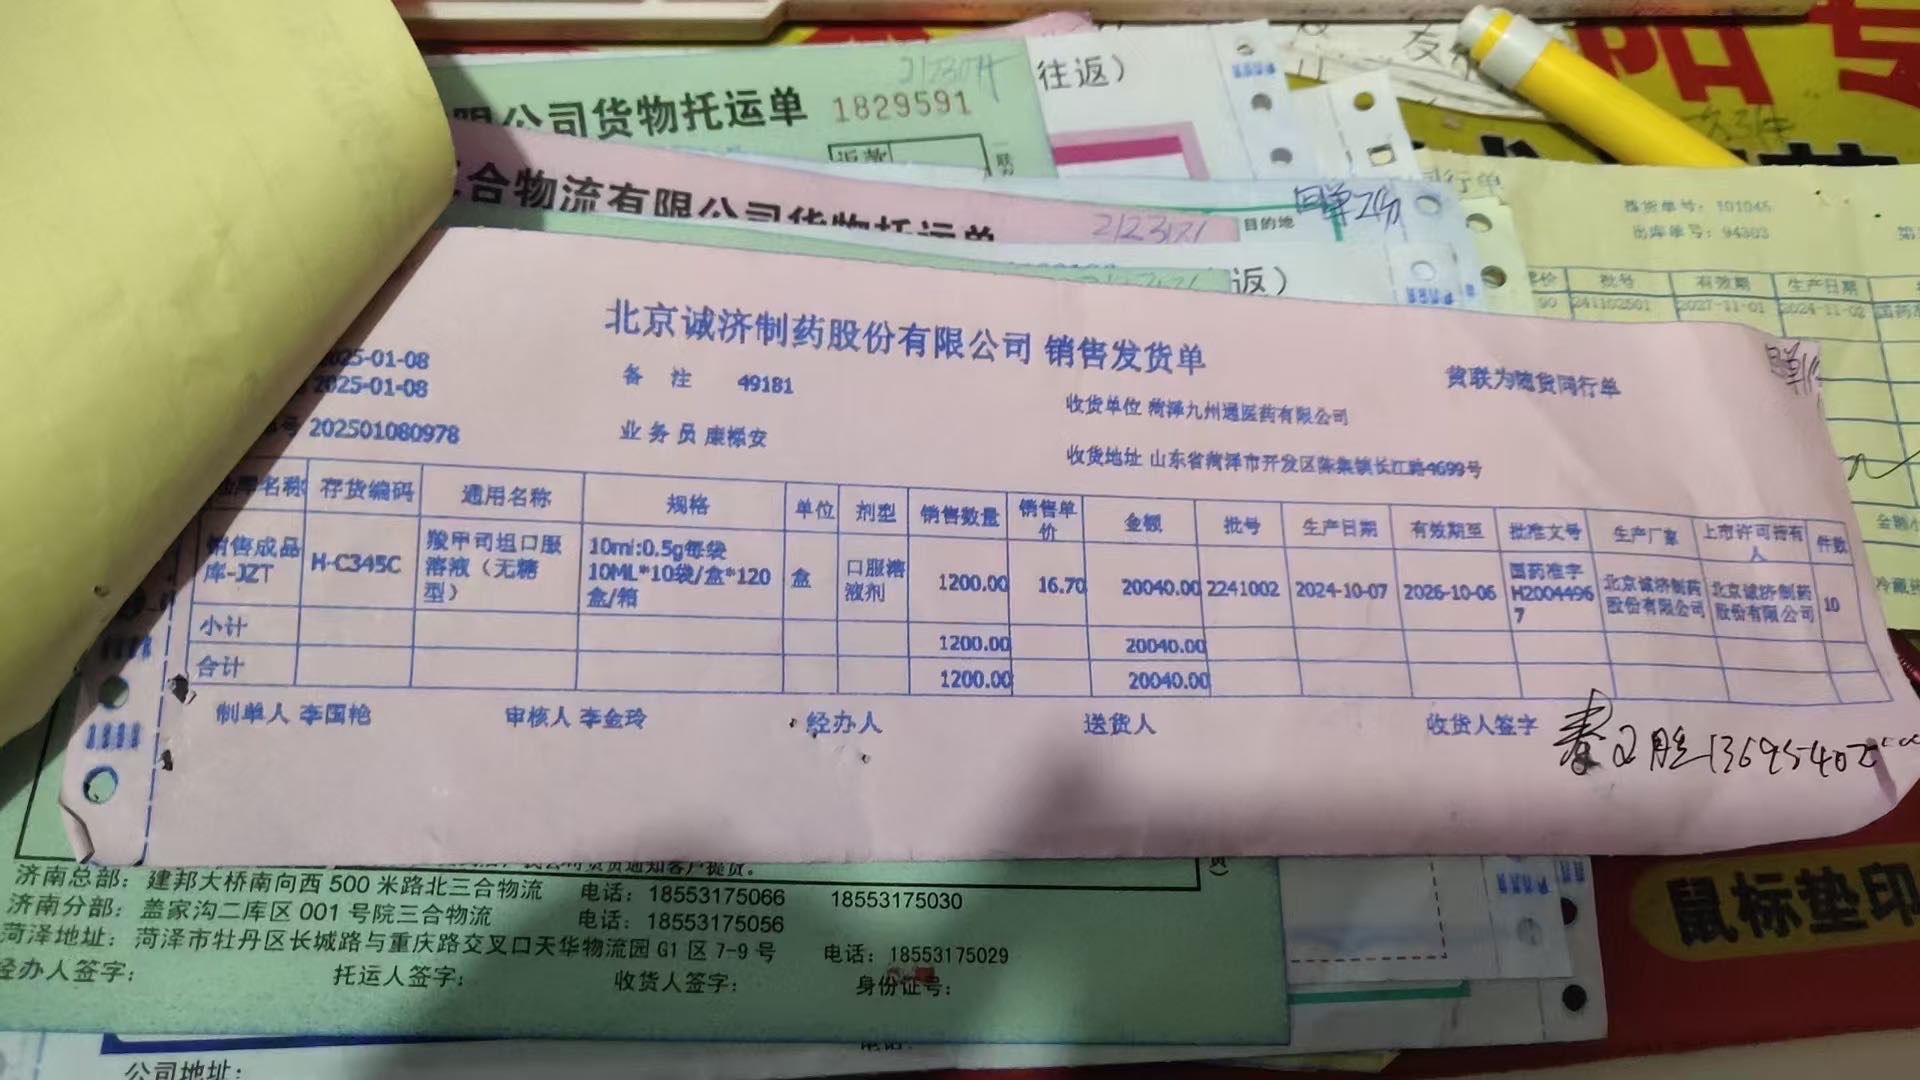 公司货物托运单 1829591
往返）
返款
合物流有限公司货物托运单
目的地
返）
同行单
出库单号：94303
批号 有效期 生产日期
241102501 2027-11-01 2024-11-02
北京诚济制药股份有限公司 销售发货单
2025-01-08
2025-01-08
备 注 49181
黄联为随货同行单
收货单位 菏泽九州通医药有限公司
号 202501080978
业 务 员 康
收货地址 山东省菏泽市开发区陈集镇长江路4699号
名称 存货编码 通用名称 规格 单位 剂型 销售数量 销售单价 金额 批号 生产日期 有效期至 批准文号 生产厂家 上市许可持有人 件数
销售成品库-JZT H-C345C 羧甲司坦口服溶液（无糖型） 10ml:0.5g每袋 10ML*10袋/盒*120盒/箱 盒 口服溶液剂 1200.00 16.70 20040.00 2241002 2024-10-07 2026-10-06 国药准字H20044967 北京诚济制药股份有限公司 北京诚济制药股份有限公司 10
小计 1200.00 20040.00
合计 1200.00 20040.00
制单人 李国艳 审核人 李金玲 经办人 送货人 收货人签字
济南总部：建邦大桥南向西 500 米路北三合物流 电话：18553175066 18553175030
济南分部：盖家沟二库区 001 号院三合物流 电话：18553175056
菏泽地址：菏泽市牡丹区长城路与重庆路交叉口天华物流园 G1 区 7-9 号 电话：18553175029
经办人签字： 托运人签字： 收货人签字： 身份证号：
公司地址：
鼠标垫印